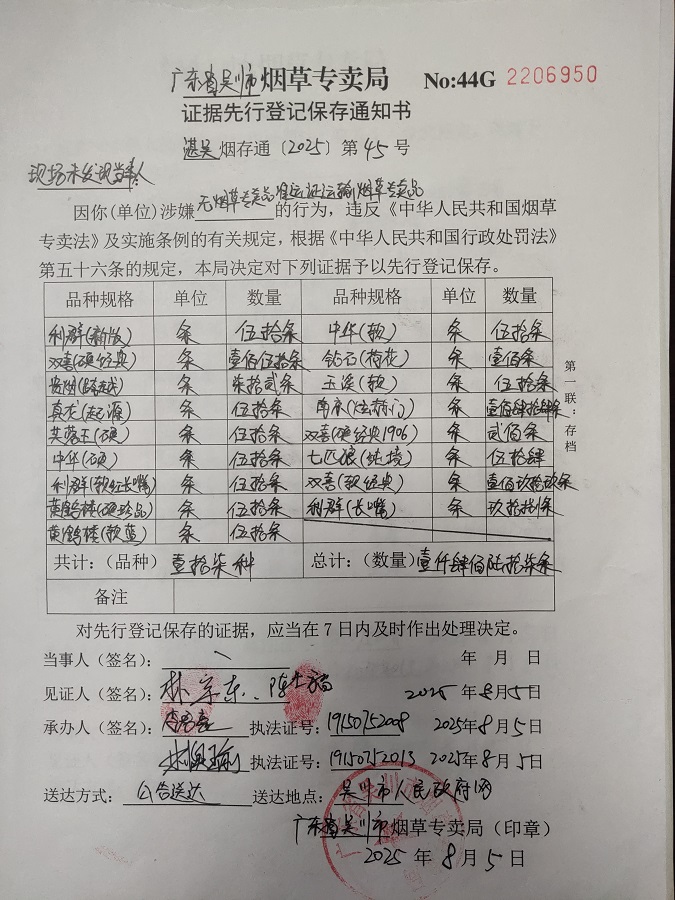 广东省吴川市烟草专卖局 No:44G 2206950
证据先行登记保存通知书
湛吴烟存通〔2025〕第45号
现场未发现当事人
因你(单位)涉嫌无烟草专卖品准运证运输烟草专卖品的行为，违反《中华人民共和国烟草
专卖法》及实施条例的有关规定，根据《中华人民共和国行政处罚法》
第五十六条的规定，本局决定对下列证据予以先行登记保存。
品种规格 单位 数量 品种规格 单位 数量
利群(新版) 条 伍拾条 中华(软) 条 伍拾条
双喜(硬经典) 条 壹佰伍拾条 钻石(荷花) 条 壹佰条
贵烟(跨越) 条 柒拾贰条 玉溪(软) 条 伍拾条
真龙(起源) 条 伍拾条 南京(炫赫门) 条 壹佰肆拾肆条
芙蓉王(硬) 条 伍拾条 双喜(硬经典1906) 条 贰佰条
中华(硬) 条 伍拾条 七匹狼(纯境) 条 伍拾肆
利群(软红长嘴) 条 伍拾条 双喜(软经典) 条 壹佰玖拾玖条
黄鹤楼(硬珍品) 条 伍拾条 利群(长嘴) 条 玖拾捌条
黄鹤楼(软蓝) 条 伍拾条
共计：(品种) 壹拾柒种 总计：(数量) 壹仟肆佰陆拾柒条
备注
第一联：存档
对先行登记保存的证据，应当在7日内及时作出处理决定。
当事人（签名）： 年 月 日
见证人（签名）：林宗东、陈 2025年8月5日
承办人（签名）： 执法证号：19150752008 2025年8月5日
执法证号：19150752013 2025年8月5日
送达方式：公告送达 送达地点：吴川市人民政府网
广东省吴川市烟草专卖局（印章）
2025年8月5日